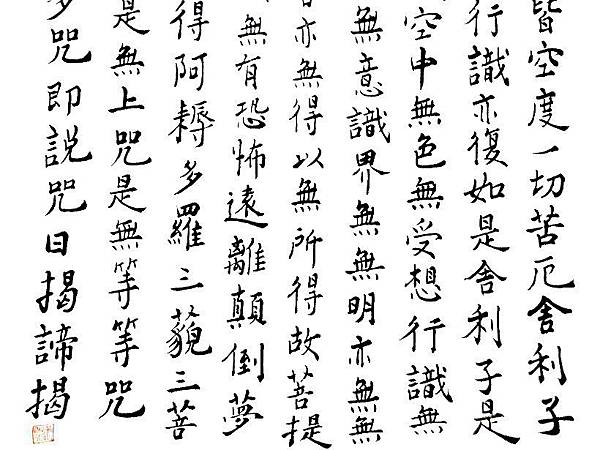 皆空度一切苦厄舍利子
行識亦復如是舍利子是
空中無色無受想行識無
無意識界無無明亦無無
亦無得以無所得故菩提
無有恐怖遠離顛倒夢
得阿耨多羅三藐三菩
是無上咒是無等等咒
多咒即説咒曰揭諦揭